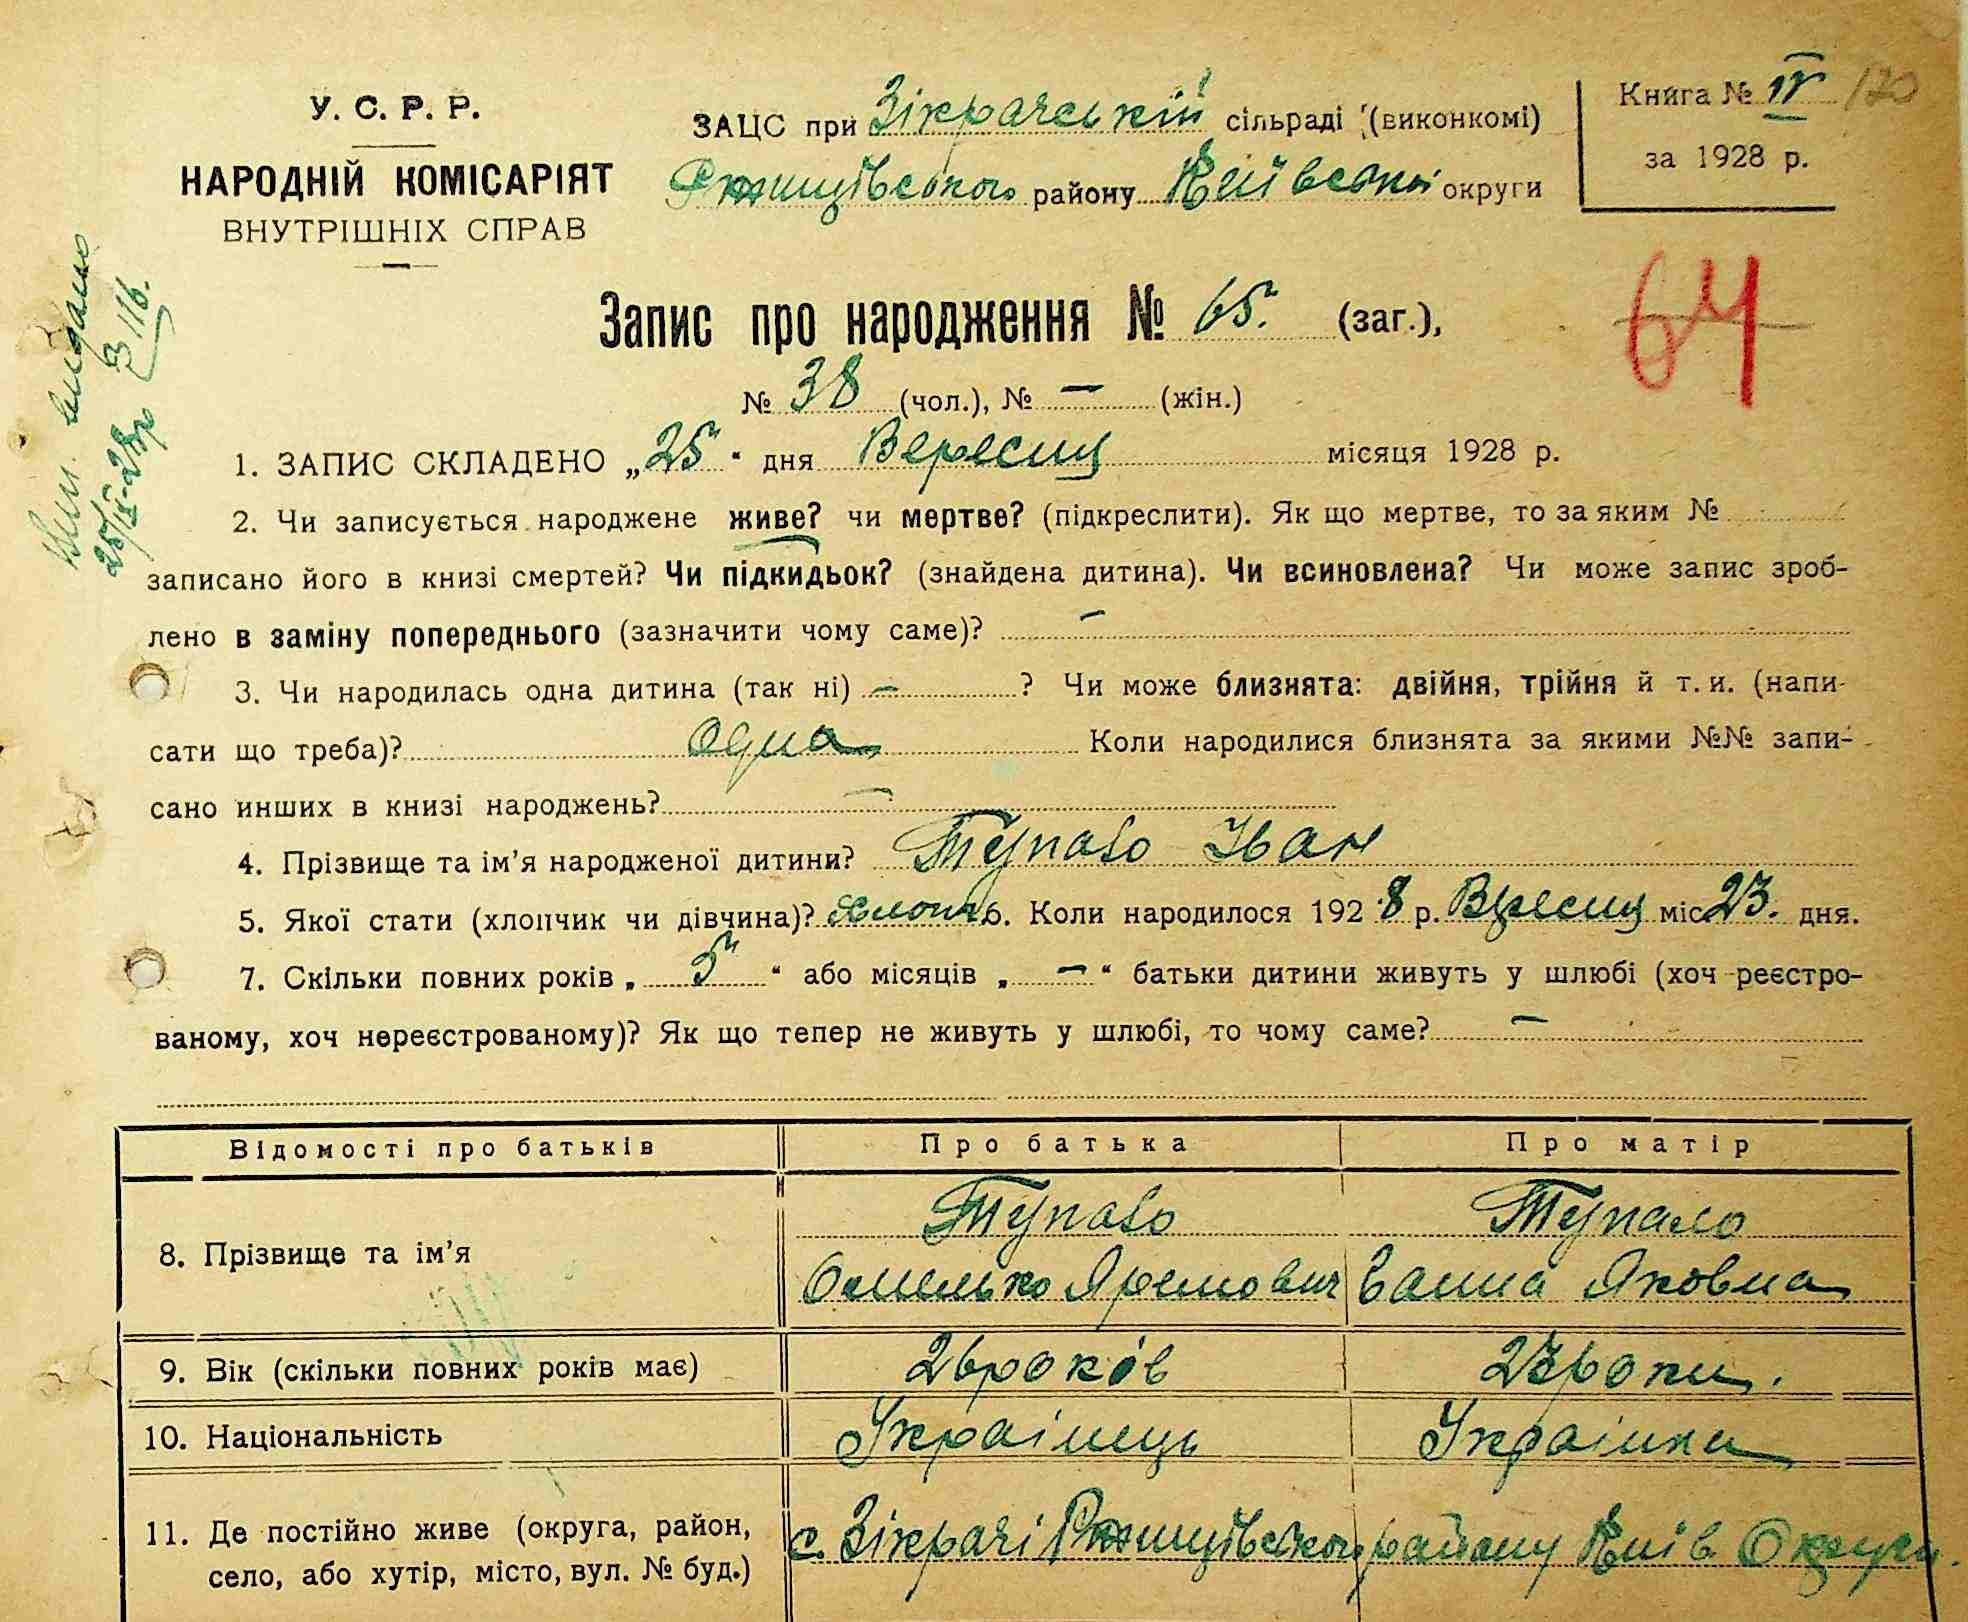 У. С. Р. Р.
НАРОДНІЙ КОМІСАРІЯТ
ВНУТРІШНІХ СПРАВ
ЗАЦС при Зікрачській сільраді (виконкомі)
Ржищівського району Київської округи
Книга № IV 120
за 1928 р.
видано
25/IX-28р
Запис про народження № 65. (заг.),
64
№ 38 (чол.), № — (жін.)
1. ЗАПИС СКЛАДЕНО „25“ дня Вересня місяця 1928 р.
2. Чи записується народжене живе? чи мертве? (підкреслити). Як що мертве, то за яким №
записано його в книзі смертей? Чи підкидьок? (знайдена дитина). Чи всиновлена? Чи може запис зроб-
лено в заміну попереднього (зазначити чому саме)? —
3. Чи народилась одна дитина (так ні) — ? Чи може близнята: двійня, трійня й т. и. (напи-
сати що треба)? Одна Коли народилися близнята за якими №№ запи-
сано инших в книзі народжень? —
4. Прізвище та ім’я народженої дитини? Тупало Іван
5. Якої стати (хлопчик чи дівчина)? хлопч. 6. Коли народилося 1928 р. Вересня міс 23. дня.
7. Скільки повних років „5“ або місяців „—“ батьки дитини живуть у шлюбі (хоч реєстро-
ваному, хоч нереєстрованому)? Як що тепер не живуть у шлюбі, то чому саме? —
Відомості про батьків Про батька Про матір
8. Прізвище та ім’я Тупало Омелько Яремович Тупало Ганна Яковна
9. Вік (скільки повних років має) 26 років 23 роки.
10. Національність Українець Українка
11. Де постійно живе (округа, район,
село, або хутір, місто, вул. № буд.) с. Зікрачі Ржищівського району Київ. Округи.